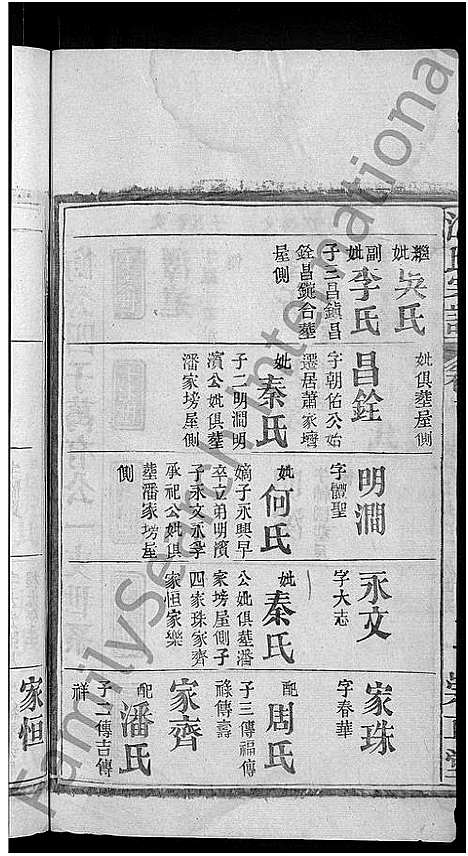 繼妣吳氏
副妣李氏
子三昌鎮昌
銓昌鏓合塟
屋側
妣俱塟屋側
昌銓
字朝佑公始
遷居蕭家塝
妣秦氏
子二明澗明
濱公妣俱塟
潘家塝屋側
明澗
字體聖
妣何氏
嫡子永興早
卒立弟明濱
子永文永孝
承祀公妣俱
塟潘家塝屋
側
永文
字大志
妣秦氏
公妣俱塟潘
家塝屋側子
四家珠家齊
家恒家樂
家珠
字春華
配周氏
子三傳福傳
祿傳壽
家齊
配潘氏
子二傳吉傳
祥
家恒
FamilySearch International